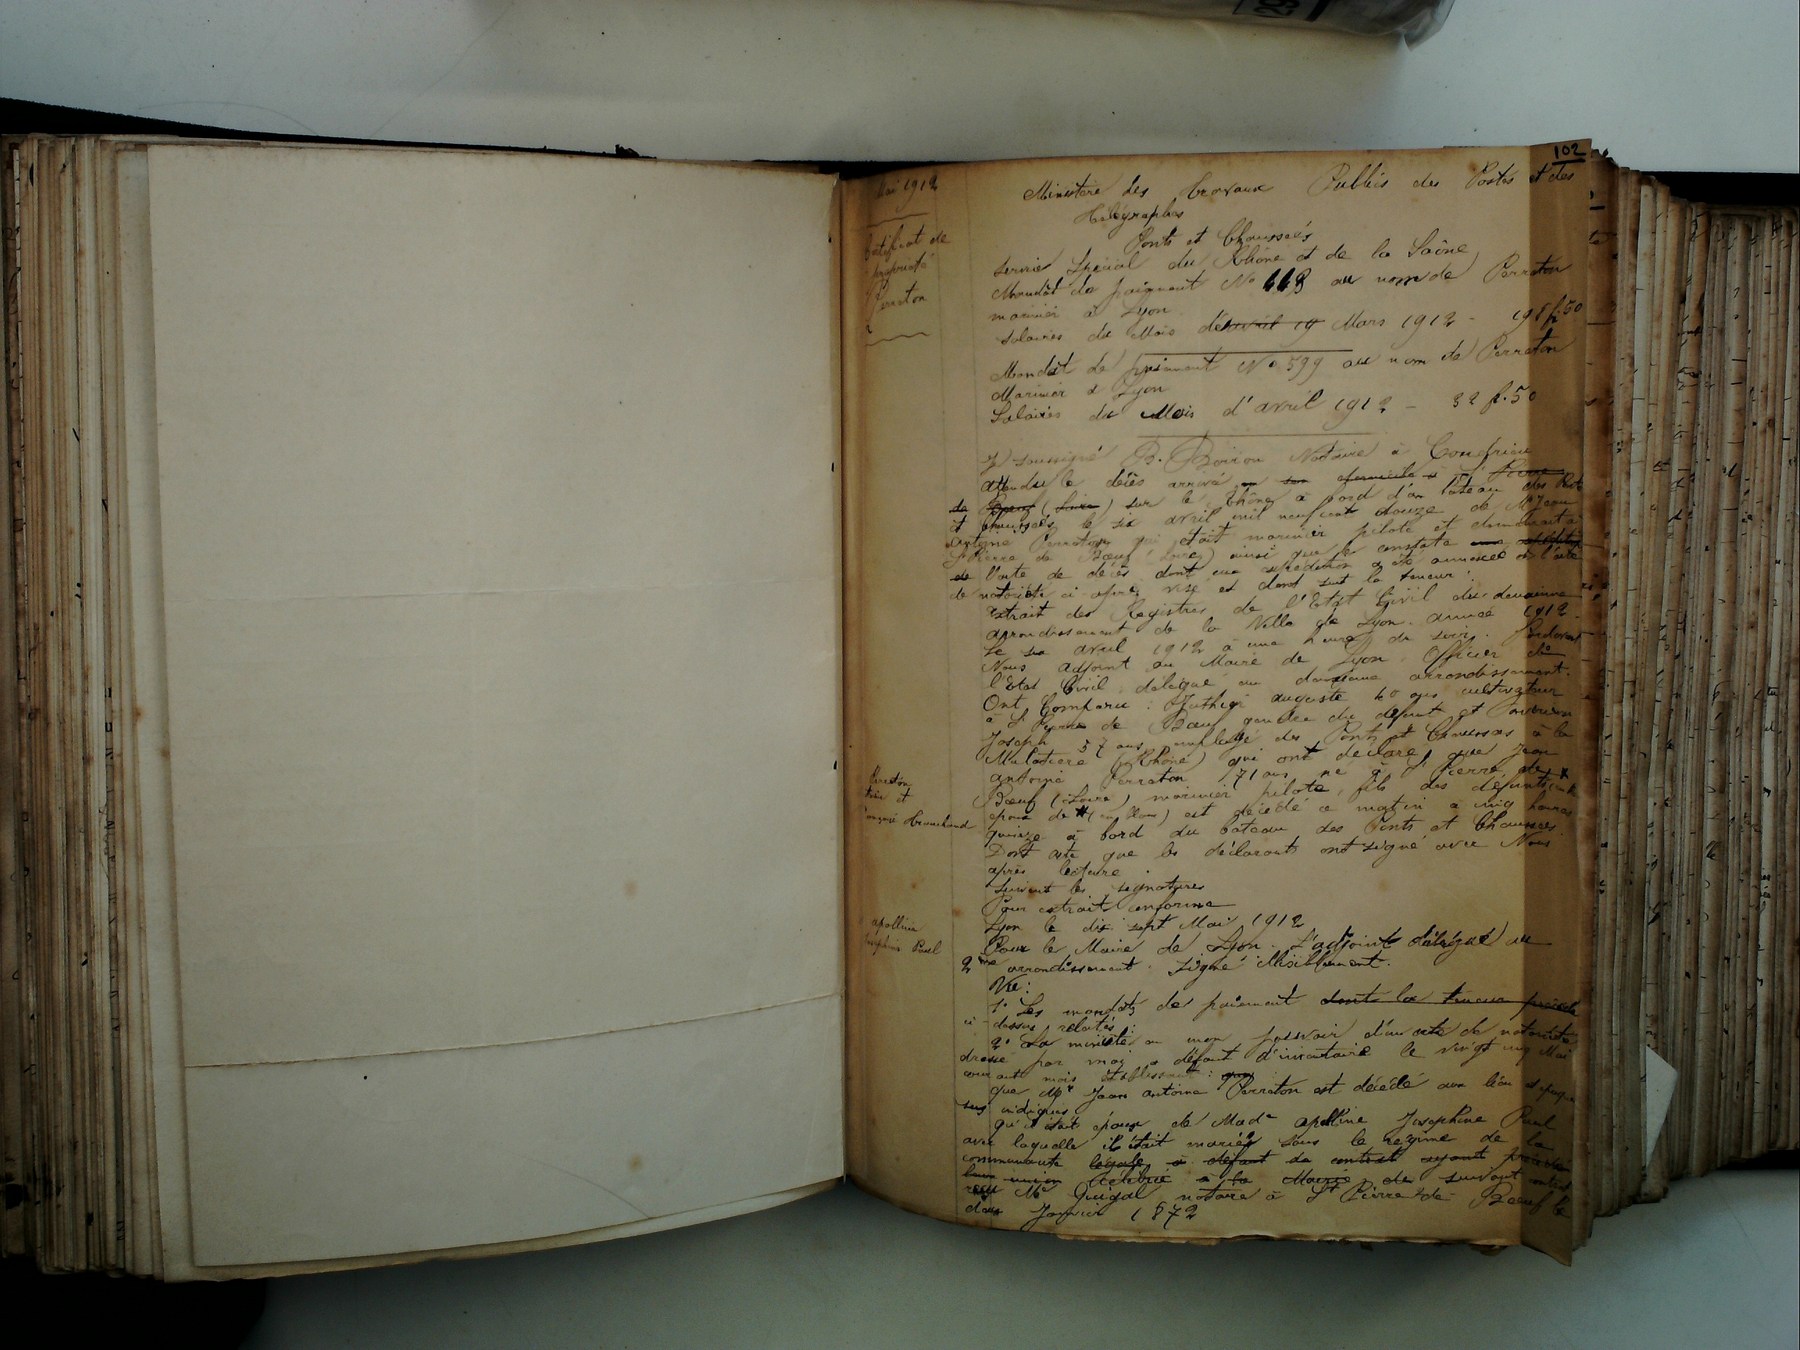 102
Mai 1912
Ministère des Travaux Publics des Postes et des
Télégraphes
Certificat de
propriété
Perraton
Ponts et Chaussées
Service Spécial du Rhône et de la Saône
Mandat de paiement No 448 au nom de Perraton
marinier à Lyon
Salaires du Mois de avril 19 Mars 1912 - 198 f.50
Mandat de paiement No 599 au nom de Perraton
Marinier à Lyon
Salaires du Mois d'avril 1912 - 32 f.50
Je soussigné B. Boiron Notaire à Condrieu
attendu le décès arrivé en son domicile à St Pierre
de Boeuf (Loire) sur le Rhône à bord d'un bateau des Ponts
et Chaussées le six avril mil neuf cent douze de Mr Jean
Antoine Perraton qui était marinier pilote et demeurait à
St Pierre de Boeuf (Loire) ainsi que le constate
de l'acte de décès dont une expédition a été annexée à l'acte
de notoriété ci après visé et dont suit la teneur :
Extrait des Registres de l'Etat Civil du deuxième
arrondissement de la Ville de Lyon. année 1912.
Le six avril 1912 à une heure du soir. Pardevant
Nous adjoint au Maire de Lyon Officier de
l'Etat Civil délégué au deuxième arrondissement.
Ont Comparu : auguste 40 ans cultivateur
à St Pierre de Boeuf gendre du défunt et
Joseph 57 ans employé des Ponts et Chaussées à la
Mulatière (Rhône) qui ont déclaré que Jean
antoine Perraton 71 ans né à St Pierre de
Boeuf (Loire) marinier pilote, fils des défunts
époux de * ( ) est décédé ce matin à cinq heures
quinze à bord du bateau des Ponts et Chaussées.
Dont acte que les déclarants ont signé avec Nous
après lecture.
Suivent les signatures
Pour extrait conforme
Lyon le dix sept Mai 1912
Pour le Maire de Lyon. L'adjoint délégué au
2ème arrondissement. Signé
Perraton
et
apolline
Joséphine Paul
Vu :
1° Les mandats de paiement dont la teneur précède
ci-dessus relatés :
2° La minute en mon pouvoir d'un acte de notoriété
dressé par moi à défaut d'inventaire le vingt cinq Mai
courant mois établissant : que
que Mr Jean antoine Perraton est décédé aux lieu et époque
sus indiqués
qu'il était époux de Made apolline Joséphine Paul
avec laquelle il était marié sous le régime de la
communauté légale à défaut de contrat ayant précédé
leur union célébrée à la Mairie de suivant contrat
reçu Me Guigal notaire à St Pierre-de-Boeuf le
deux Janvier 1872